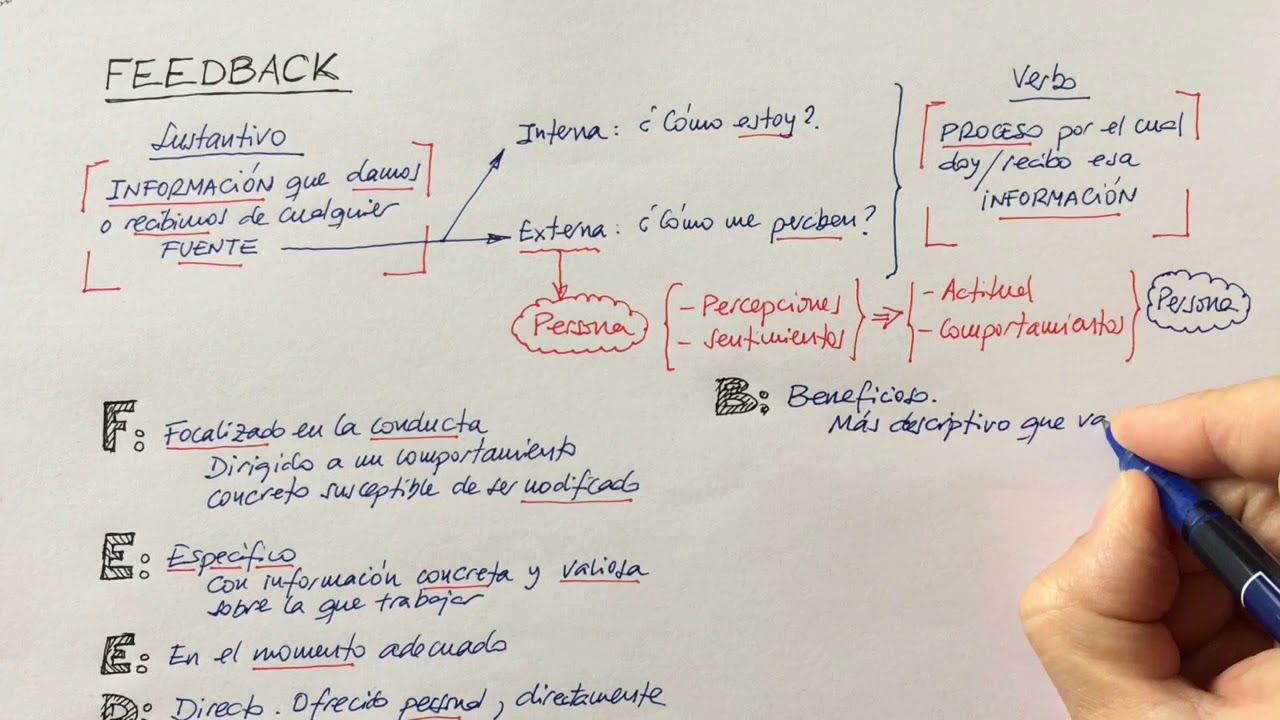 FEEDBACK
Sustantivo
INFORMACIÓN que damos
o recibimos de cualquier
FUENTE
Interna: ¿Cómo estoy?
Externa: ¿Cómo me perciben?
Verbo
PROCESO por el cual
doy/recibo esa
INFORMACIÓN
Persona
- Percepciones
- Sentimientos
- Actitud
- Comportamientos
Persona
F: Focalizado en la conducta
Dirigido a un comportamiento
concreto susceptible de ser modificado
E: Específico
Con información concreta y valiosa
sobre la que trabajar
E: En el momento adecuado
D: Directo. Ofrecido personal, directamente
B: Beneficioso.
Más descriptivo que va